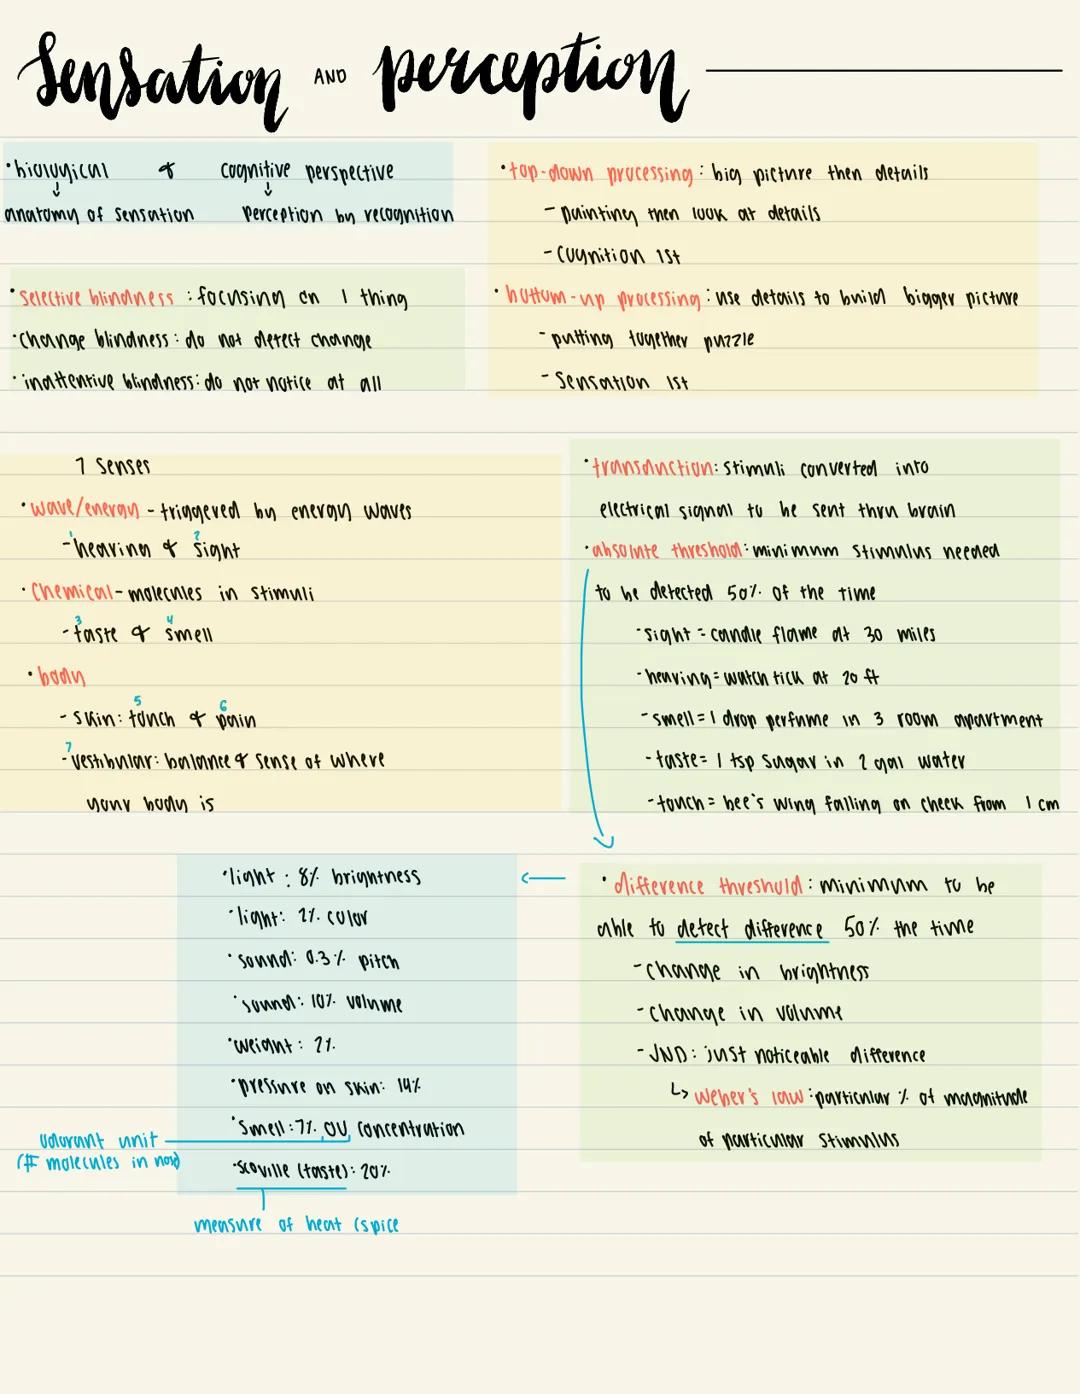 Sensation AND perception
• biological & cognitive perspective
↓ ↓
anatomy of sensation perception by recognition
• selective blindness : focusing on 1 thing
• change blindness : do not detect change
• inattentive blindness: do not notice at all
• top-down processing : big picture then details
- painting then look at details
- cognition 1st
• bottom-up processing : use details to build bigger picture
- putting together puzzle
- sensation 1st
7 senses
• wave/energy - triggered by energy waves
1 2
- hearing & sight
• chemical - molecules in stimuli
3 4
- taste & smell
• body
5 6
- skin: touch & pain
7
- vestibular: balance & sense of where
your body is
• transduction: stimuli converted into
electrical signal to be sent thru brain
• absolute threshold: minimum stimulus needed
to be detected 50% of the time
- sight = candle flame at 30 miles
- hearing = watch tick at 20 ft
- smell = 1 drop perfume in 3 room apartment
- taste = 1 tsp sugar in 2 gal water
- touch = bee's wing falling on cheek from 1 cm
• difference threshold : minimum to be
able to detect difference 50% the time
- change in brightness
- change in volume
- JND : just noticeable difference
↳ weber's law : particular % of magnitude
of particular stimulus
• light : 8% brightness
• light: 2% color
• sound: 0.3% pitch
• sound: 10% volume
• weight : 2%
• pressure on skin: 14%
• smell : 7% OU concentration
odorant unit
(# molecules in nose)
• scoville (taste) : 20%
measure of heat (spice